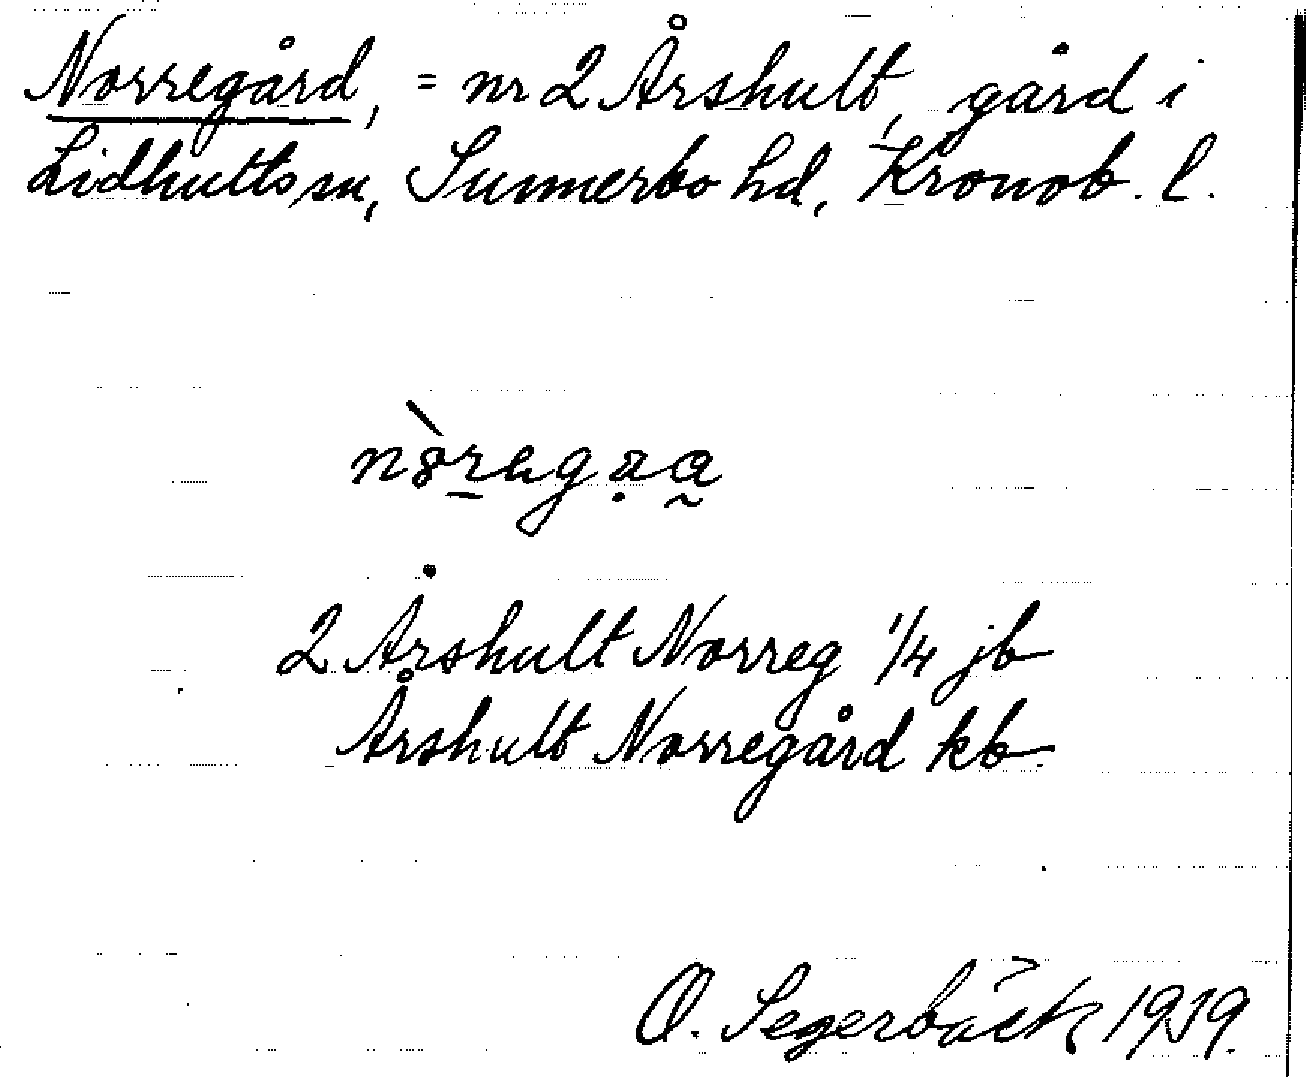 Norregård, = nr 2 Årshult, gård i
Lidhults sn, Sunnerbo hd, Kronob. l.
2 Årshult Norreg 1/4 jb
Årshult Norregård kb
O. Segerbäck 1919.